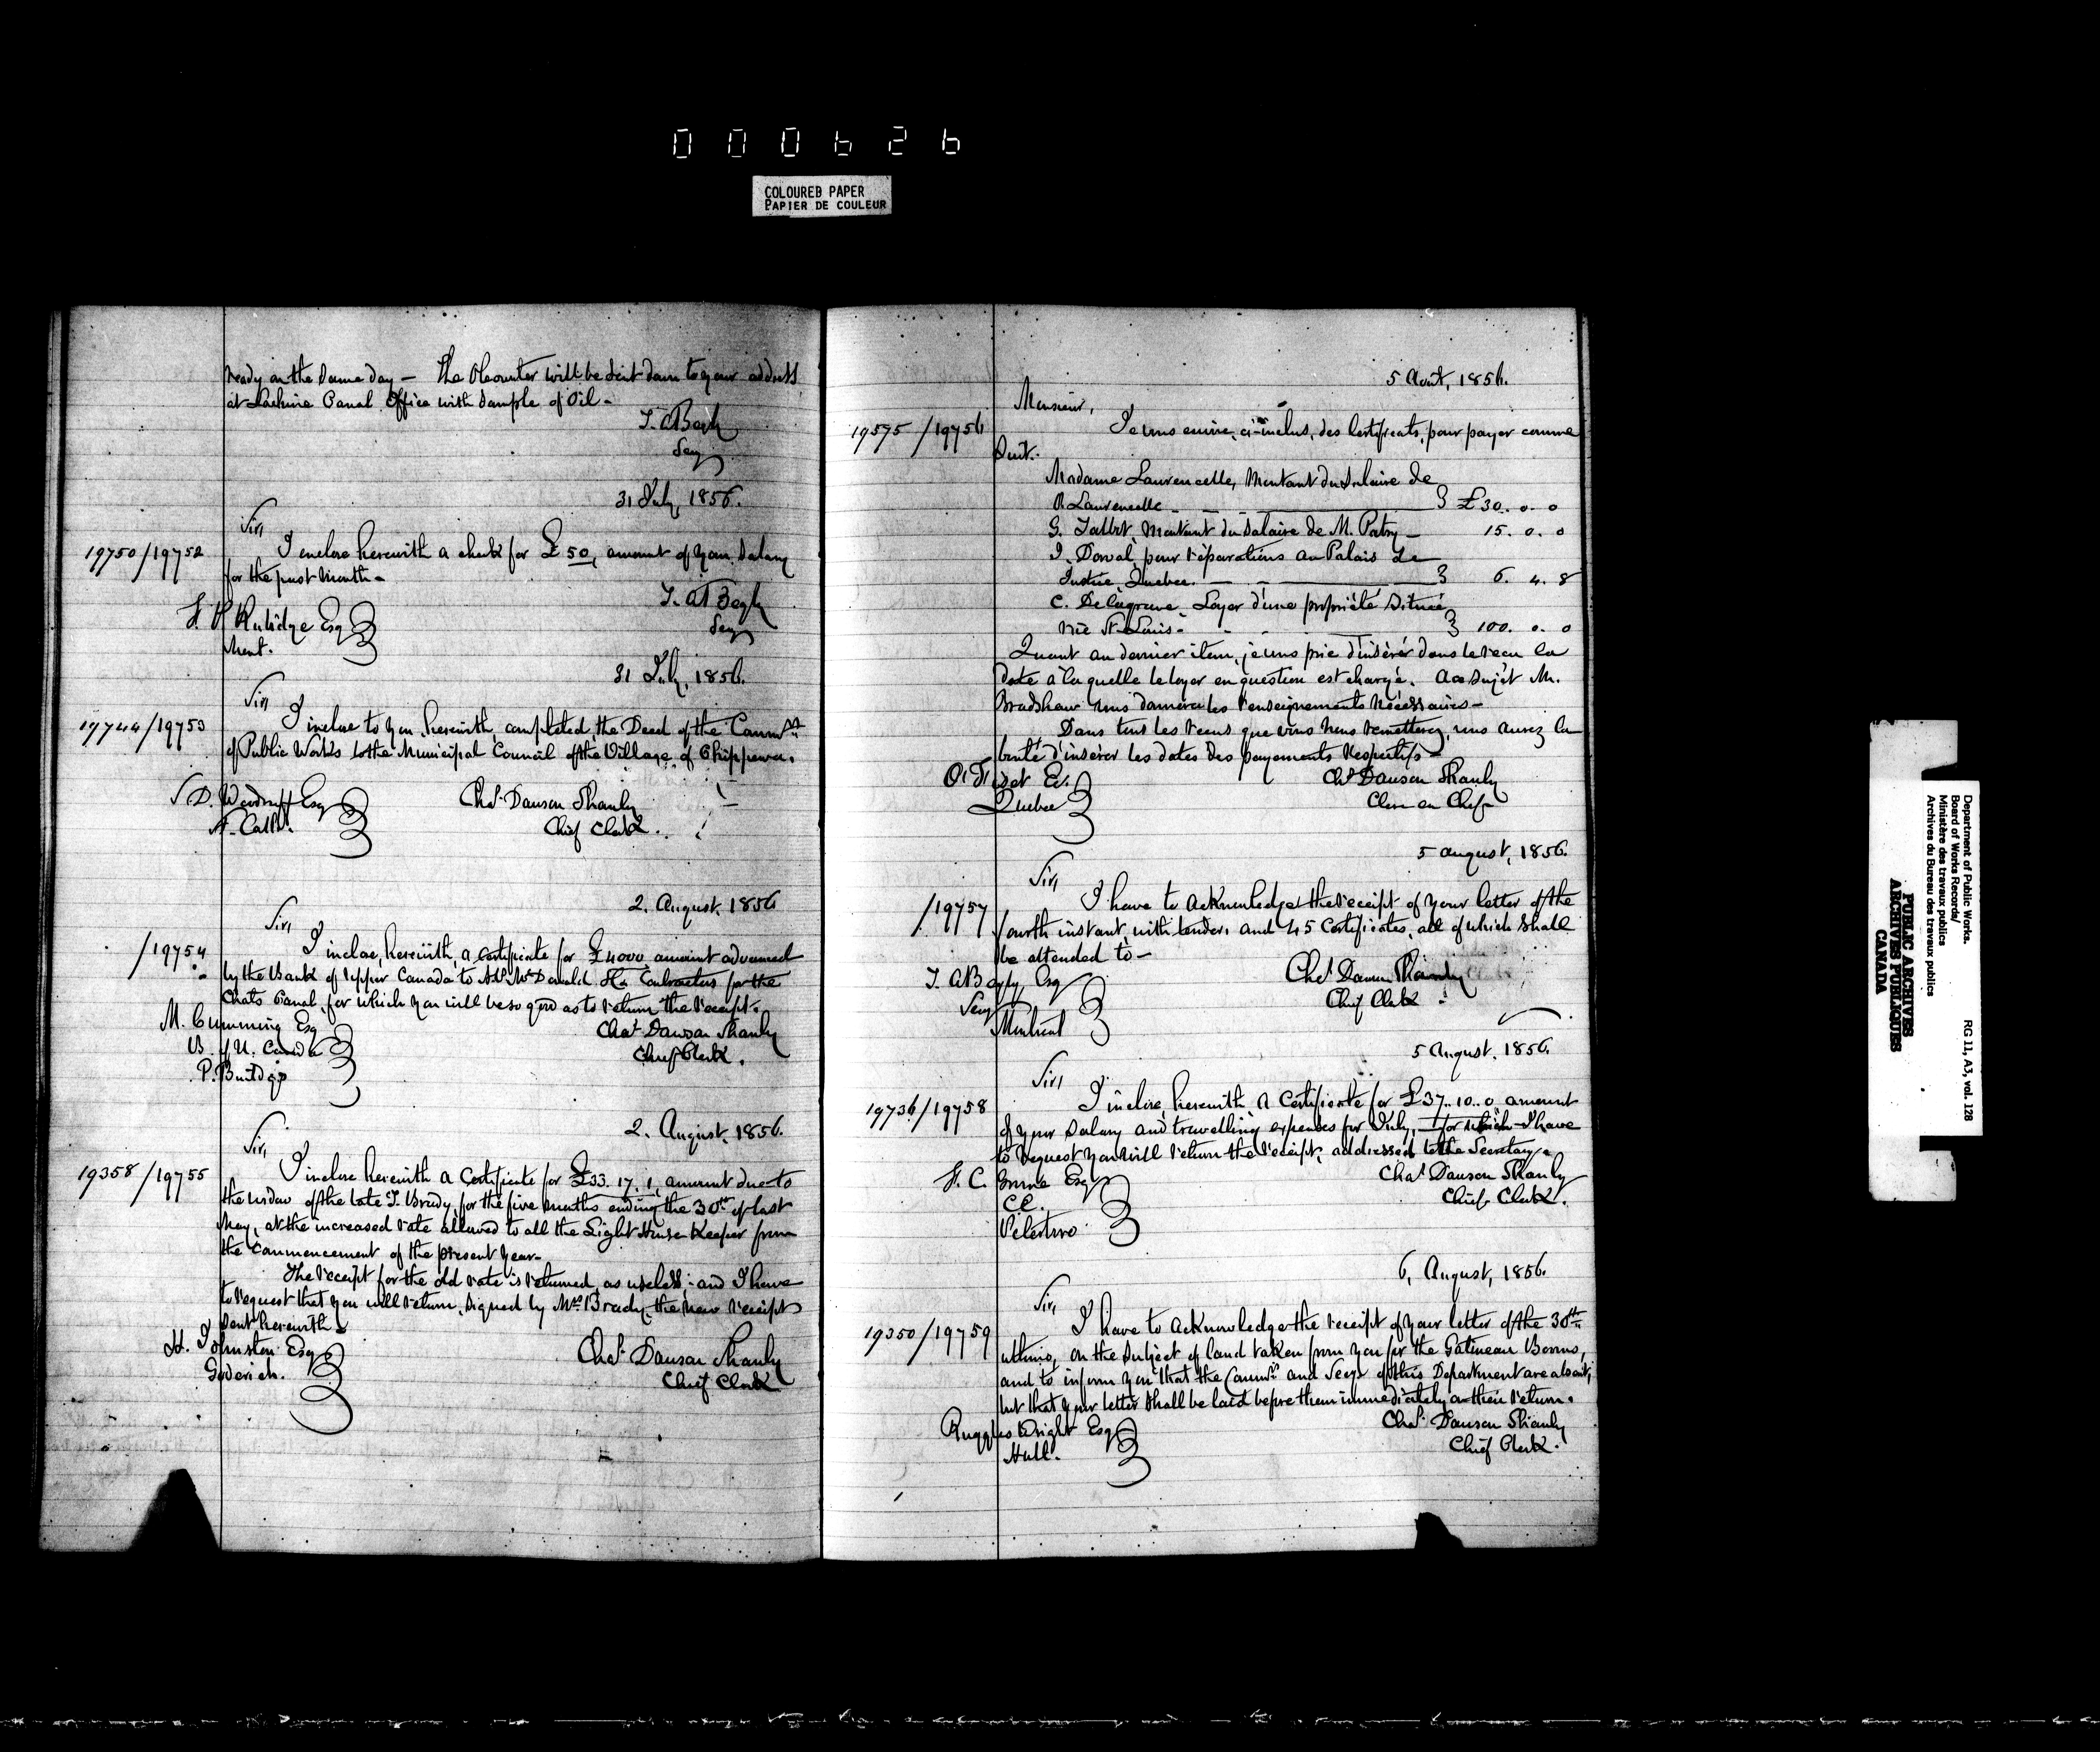 000626
COLOURED PAPER
PAPIER DE COULEUR
ready on the same day — The Oleometer will be sent down to your address
at Lachine Canal Office with sample of Oil -
T. A Begly
Secy
31 July, 1856.
Sir,
19750/19752
I inclose herewith a check for £50, amount of your salary
for the past month -
T. A Begly
Secy
F. P Rubidge Esq
Ment.
31 July, 1856.
Sir,
19744/19753
I inclose to you herewith, completed the Deed of the Commrs
of Public Works to the Municipal Council of the Village of Chippewa.
S. D. Woodruff Esq
St. Cath.
Chas. Dawson Shanly
Chief Clerk.
2. August. 1856
Sir,
/19754
I inclose, herewith, a certificate for £4000 amount advanced
by the Bank of Upper Canada to McDonald Contractors for the
Chats Canal, for which you will be so good as to return the receipt.
M. Cumming Esq
B. of U. Canada
P. Buildgs
Chas. Dawson Shanly
Chief Clerk.
2. August. 1856.
Sir,
19358/19755
I inclose herewith a certificate for £33. 17. 1, amount due to
the widow of the late T. Brady, for the five months ending the 30th of last
May, at the increased rate allowed to all the Light House Keeper from
the commencement of the present year-
The receipt for the old rate is returned, as useless; and I have
to request that you will return, signed by Mrs Brady, the new receipt
sent herewith -
H. Johnston Esq
Goderich.
Chas. Dawson Shanly
Chief Clerk
5 Aout, 1856.
Monsieur,
19575/19756
Je vous envoie, ci-inclus, des certificats, pour payer comme
suit.
Madame Laurencelle, Montant du Salaire de
Laurencelle - £30. 0. 0
G. Talbot, Montant du Salaire de M. Patry - 15. 0. 0
J. Dorval, pour réparations au Palais de
Justice, Quebec. 6. 4. 8
C. Delagrave, Loyer d'une propriété située
rue St Louis - 100. 0. 0
Quant au dernier item, je vous prie d'insérer dans le recu la
date à laquelle le loyer en question est chargé. A ce sujet M.
Bradshaw vous donnera les renseignements nécéssaires -
Dans tous les recus que vous nous remetterez, vous aurez la
bonté d'insérer les dates des payements respectifs -
Quebec
Chs Dawson Shanly
Clerc en Chef
5 August, 1856.
Sir,
/19757
I have to acknowledge the receipt of your letter of the
fourth instant, with tenders and 45 certificates, all of which shall
be attended to -
T. A Begly Esq
Secy
Montreal
Chas Dawson Shanly
Chief Clerk
5 August. 1856.
Sir,
19736/19758
I inclose, herewith, a Certificate for £37..10..0 amount
of your salary and travelling expenses for July, for which I have
to request you will return the receipt, addressed to the Secretary.
C.E.
Chas Dawson Shanly
Chief Clerk.
6, August, 1856.
Sir,
19350/19759
I have to acknowledge the receipt of your letter of the 30th
ultimo, on the subject of land taken from you for the Gatineau Booms,
and to inform you that the Commrs and Secy of this Department are absent;
but that your letter shall be laid before them immediately on their return.
Ruggles Wright Esq
Hull.
Chas. Dawson Shanly
Chief Clerk.
Department of Public Works.
Board of Works Records/
Ministère des travaux publics
Archives du Bureau des travaux publics
RG 11, A3, vol. 128
PUBLIC ARCHIVES
ARCHIVES PUBLIQUES
CANADA